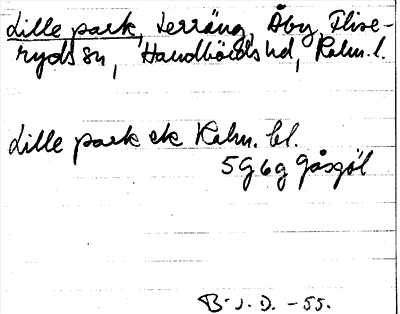 Lille park, terräng, Åby, Flise-
ryds sn, Handbörds hd, Kalm. l.
Lille park ek Kalm. bl.
5G6g Gåsgöl
B.J.D. -55.